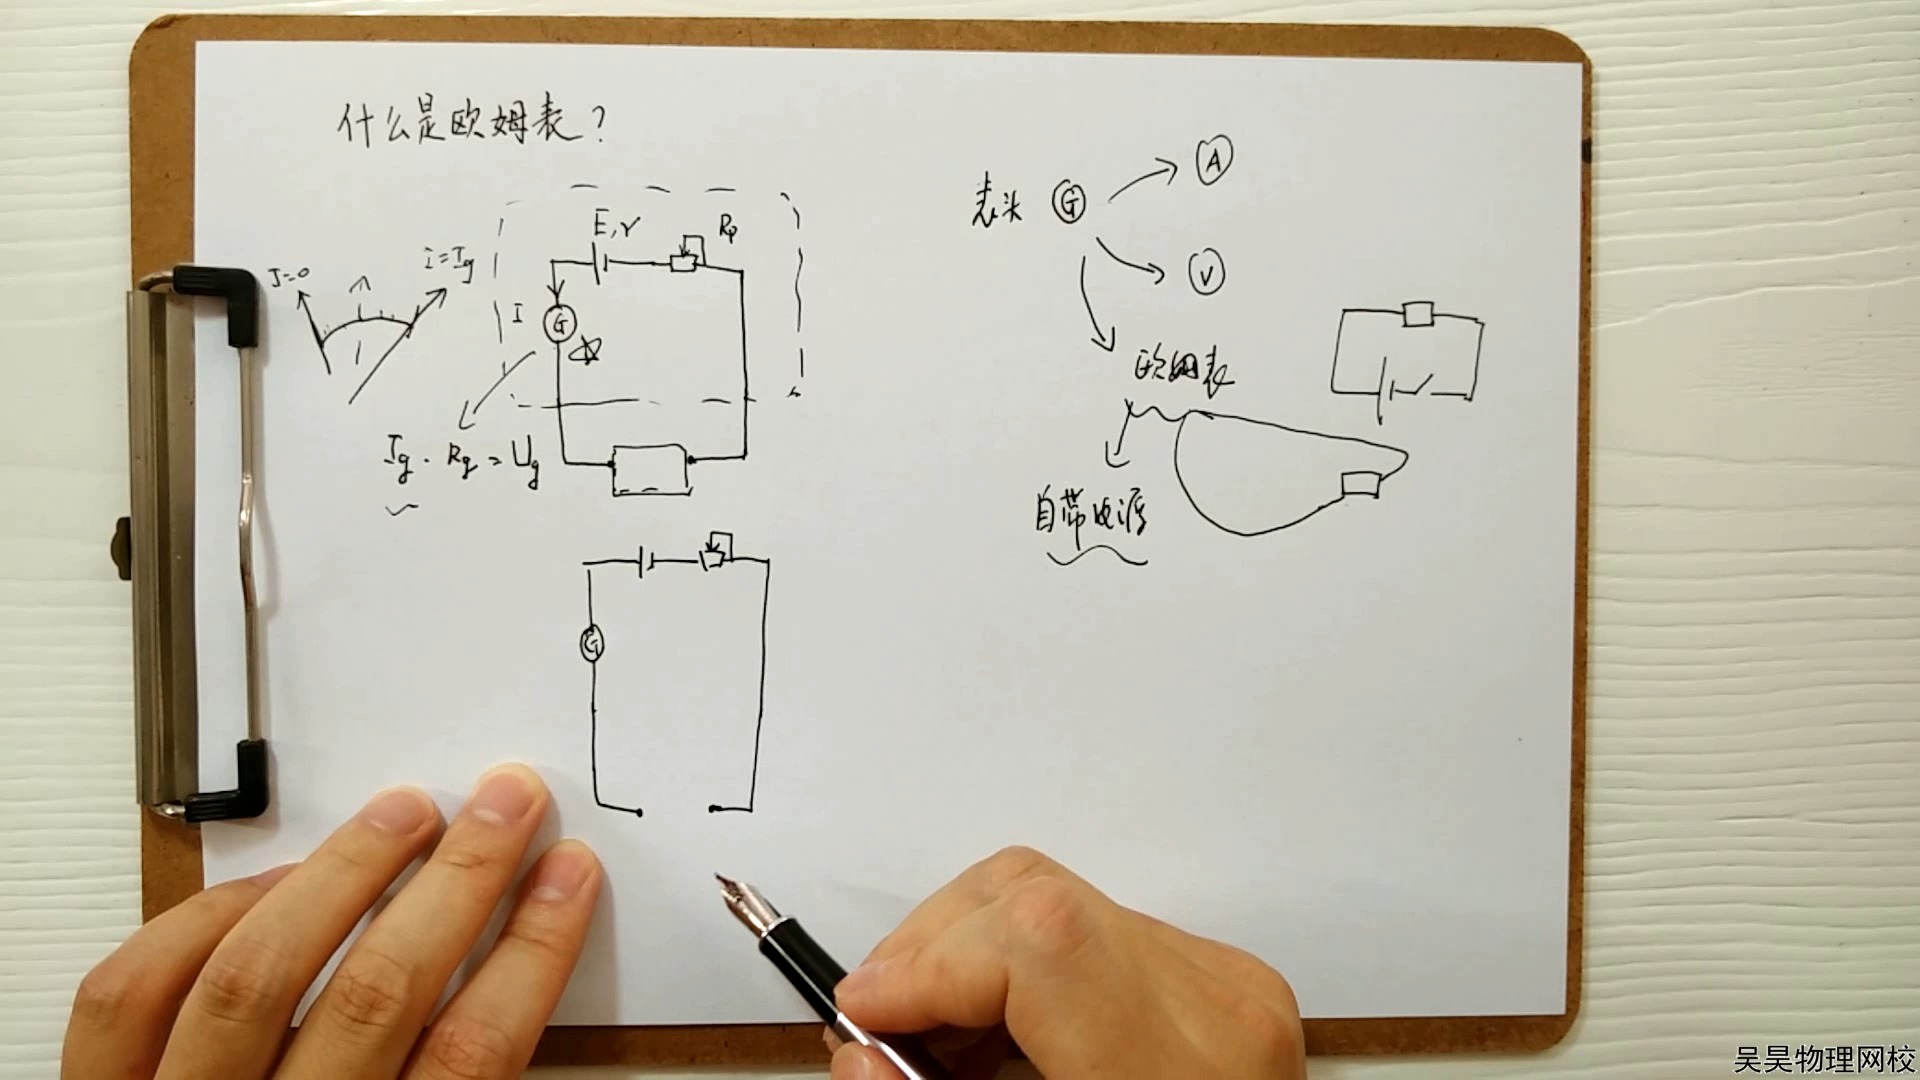 什么是欧姆表?
E,r
Rp
I=0
i=Ig
I
G
Ig · Rg = Ug
G
表头 G
A
V
欧姆表
自带电源
吴昊物理网校